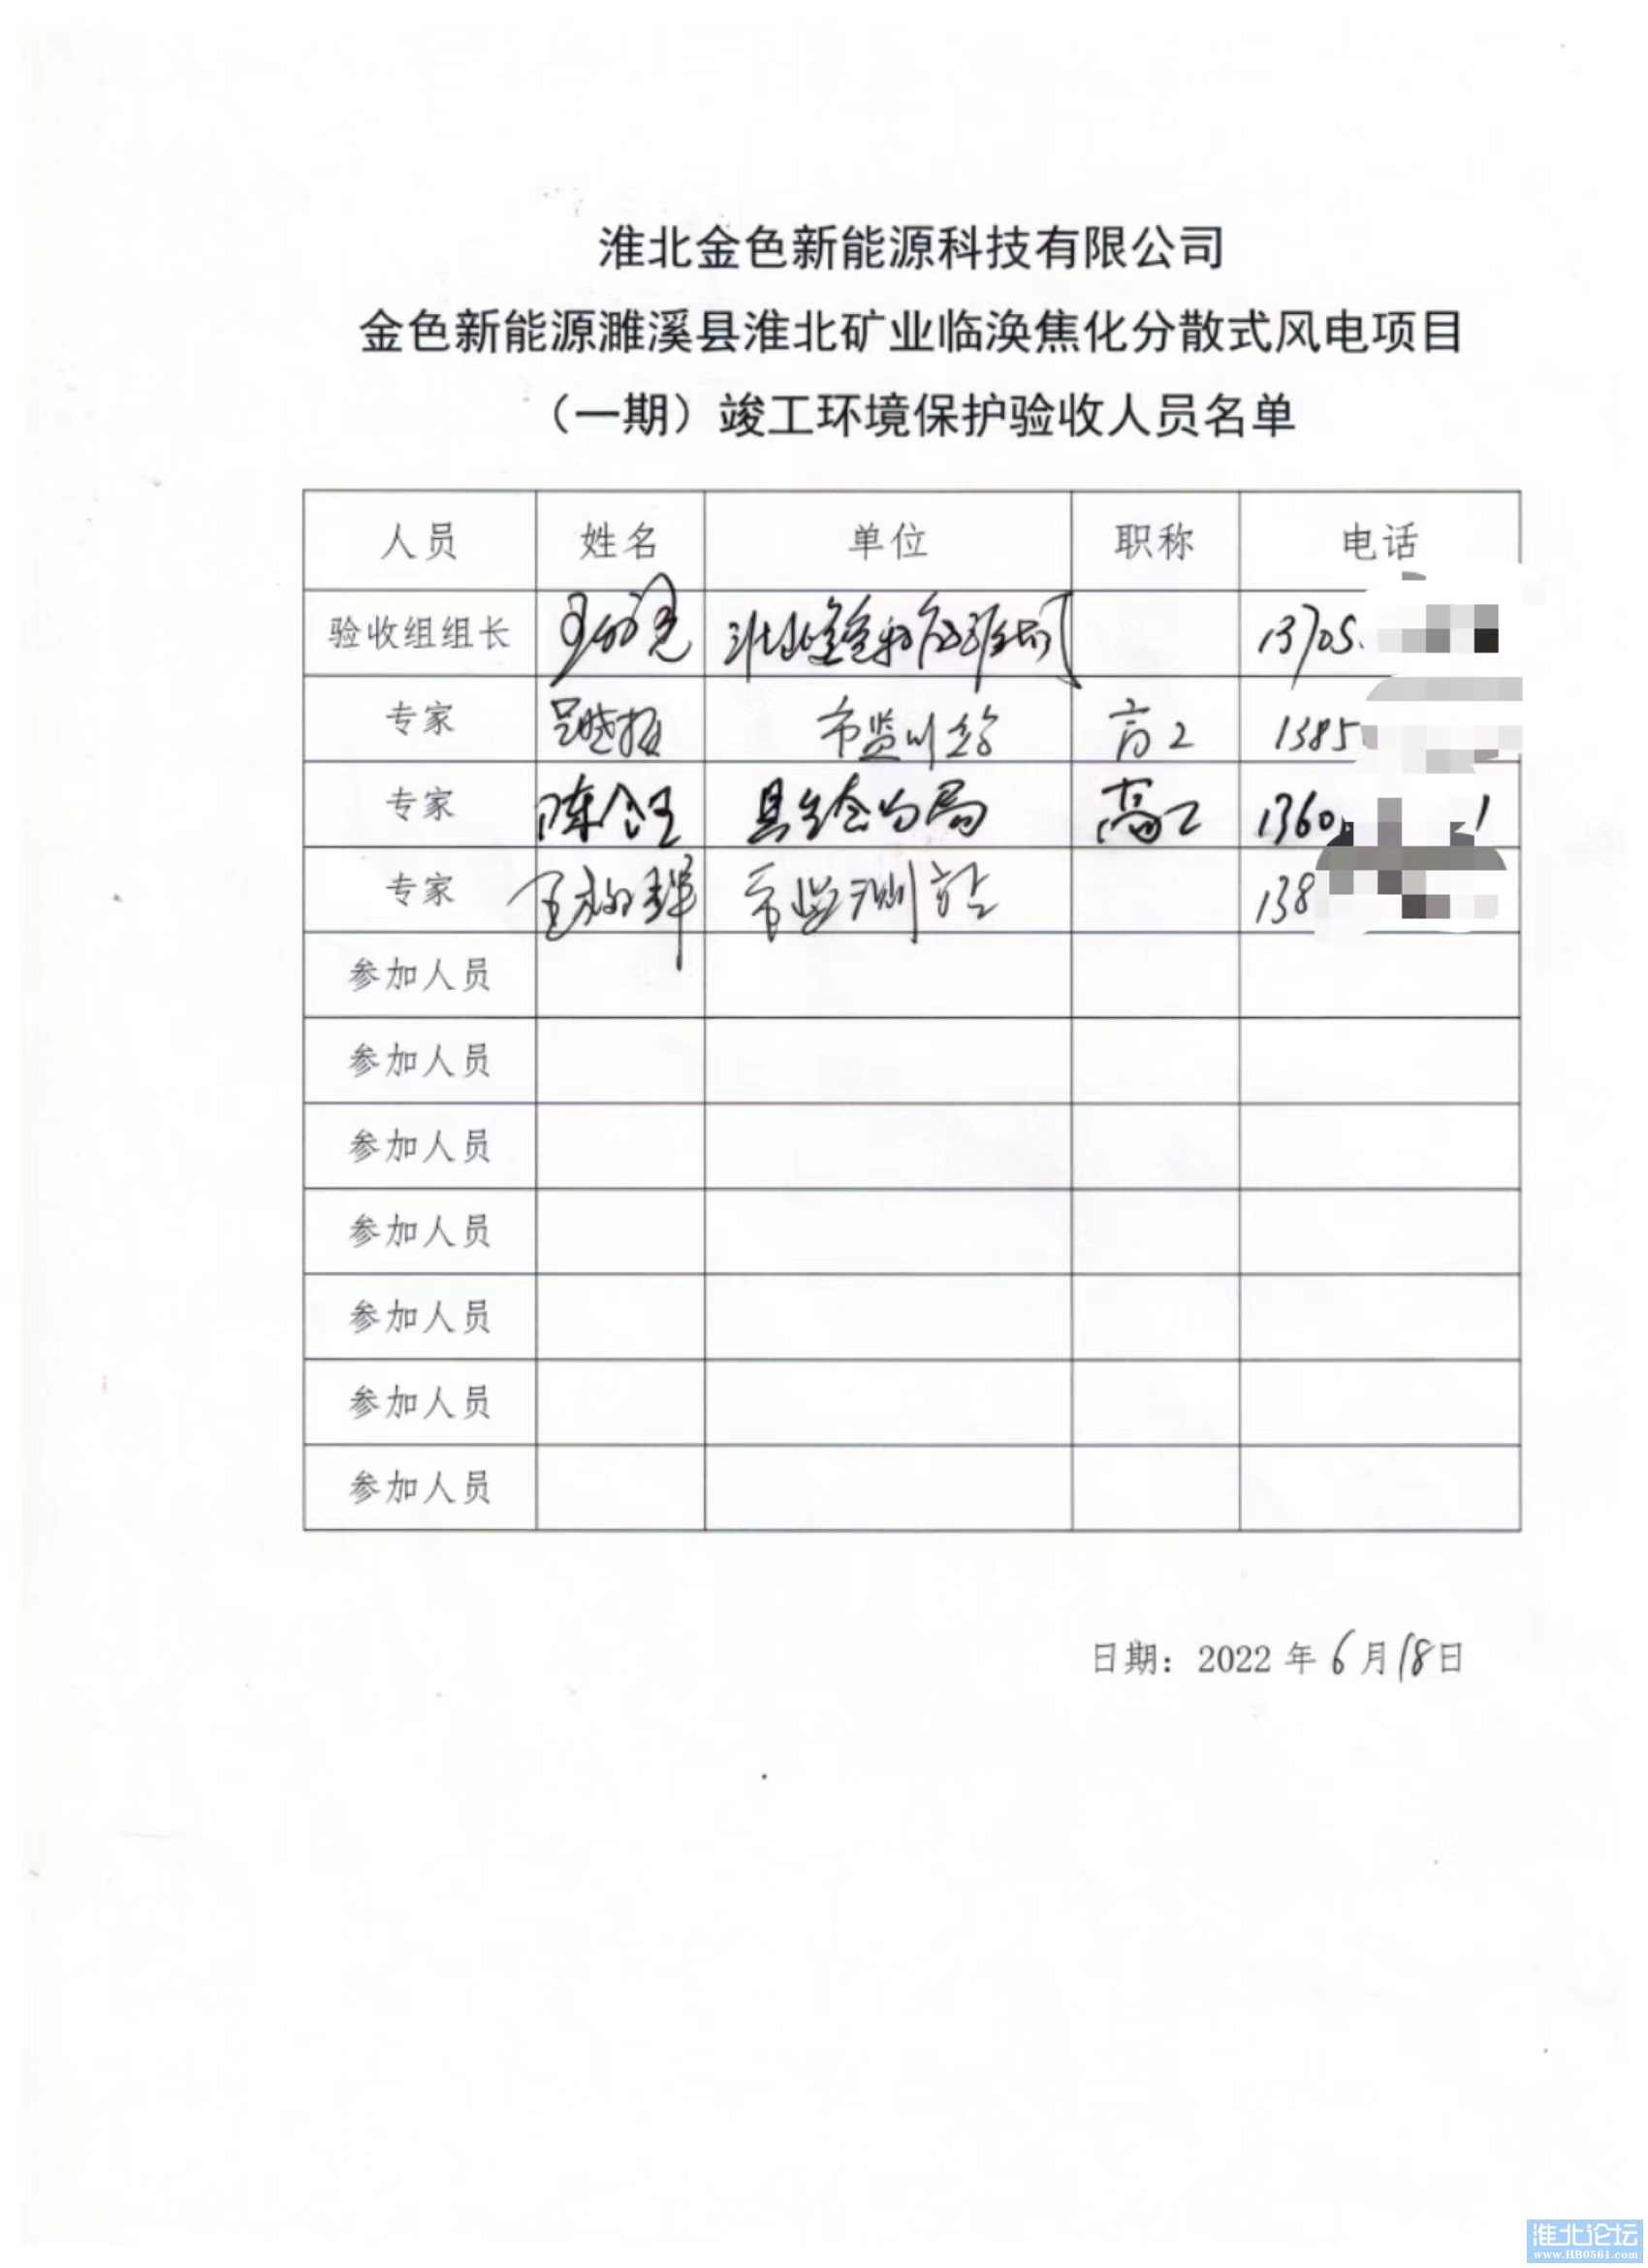 淮北金色新能源科技有限公司
金色新能源濉溪县淮北矿业临涣焦化分散式风电项目
（一期）竣工环境保护验收人员名单
人员 姓名 单位 职称 电话
验收组组长 13705
专家 高工 1385
专家 陈 县 局 高工 1360 1
专家 王 市监测站 138
参加人员
参加人员
参加人员
参加人员
参加人员
参加人员
参加人员
日期：2022年6月18日
淮北论坛
www.HB0561.com